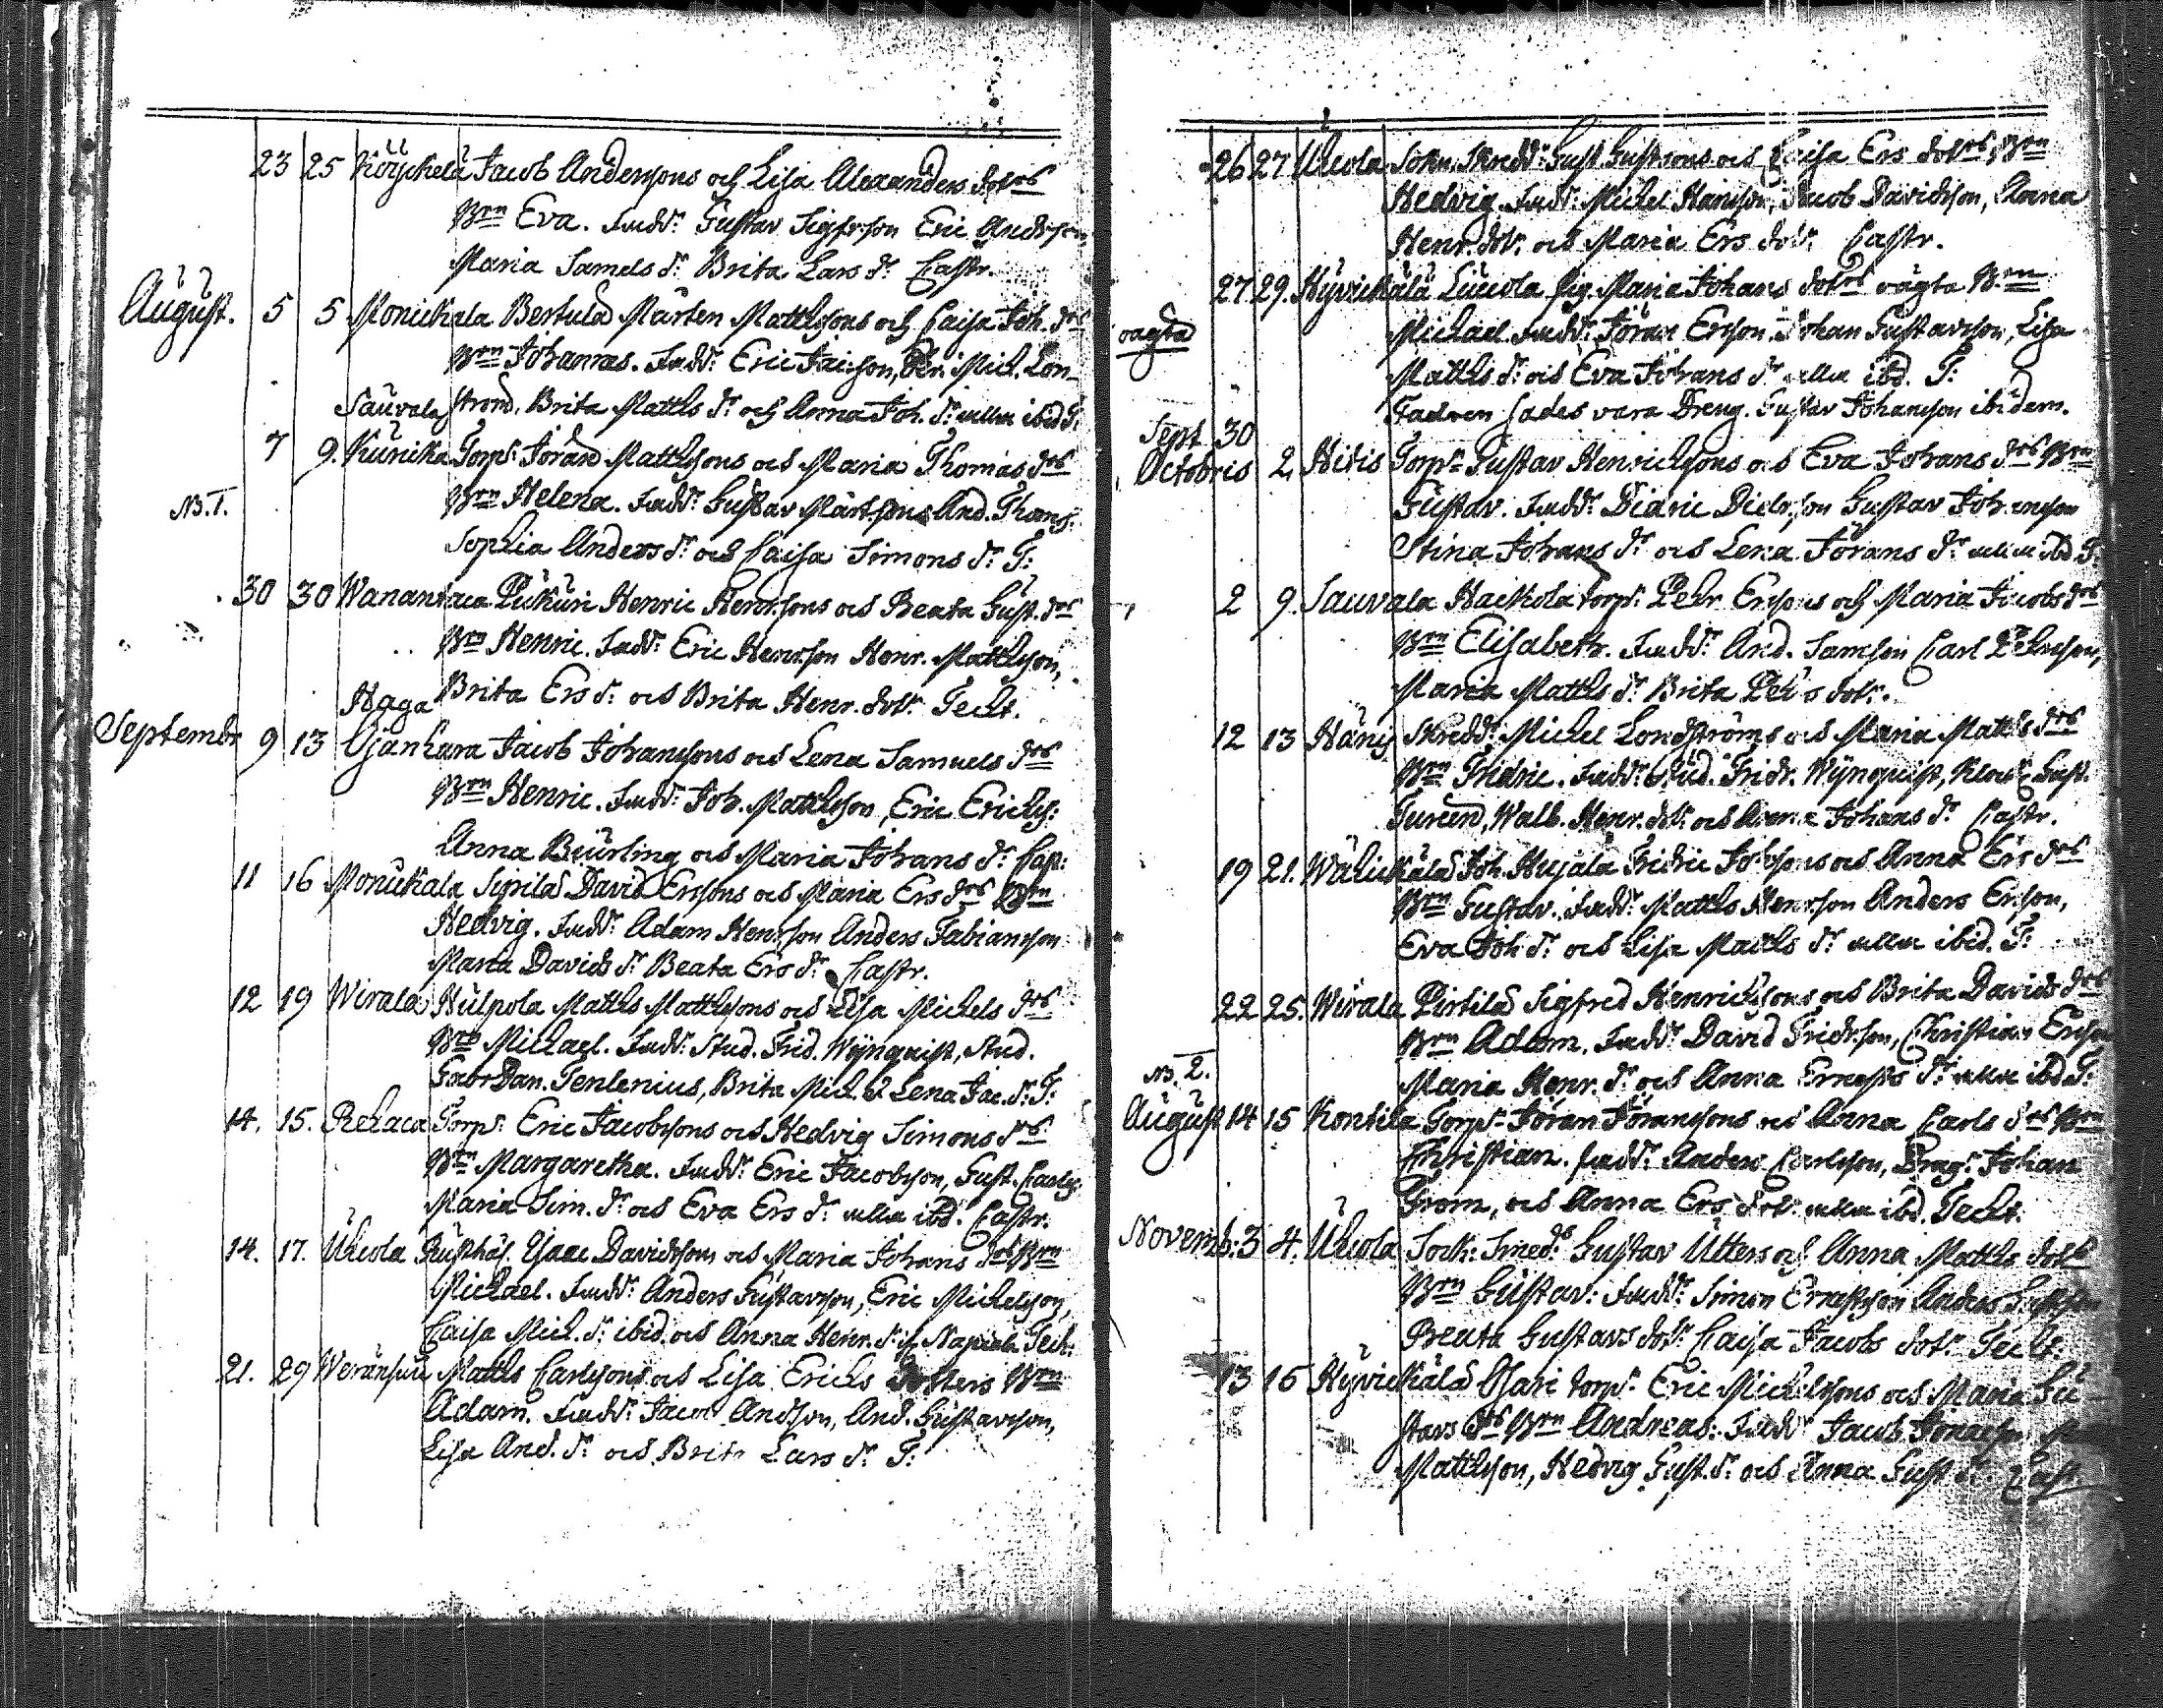 23 25 Köyckelä Jacob Anderssons och Lisa Alexanders dotrs
Brn Eva. Fadd: Gustav Sigfrson Eric Anderson,
Maria Samels dr Brita Lars dr Castr.
August. 5 5 Monickala Bertula Mårten Mattssons och Caisa Joh. drs
Brn Johannes. Fadd: Eric Jacson, Mich. Lon-
Sauvala ström, Brita Matts dr och Anna Joh. dr ibid T.
7 9. Kuricka Torp: Jöran Mattssons och Maria Thomas drs
NB. 1. Brn Helena. Fadd: Gustav Mårt.sons And. Thoms:
Sophia Anders dr och Caisa Simons dr T:
30 30 Wanantaca Pukuri Henric Henrsons och Beata Gust. drs
Brn Henric. Fadd: Eric Henrson Henr. Mattsson,
Haga Brita Ers dr och Brita Henr. dotr Techt.
Septembr 9 13 Ojanhara Jacob Johanssons och Lena Samuels drs
Brn Henric. Fadd: Joh. Mattsson, Eric Erichs:
Anna Beurling och Maria Johans dr Cast:
11 16 Monickala Sipilä David Ersons och Maria Ers drs Brn
Hedvig. Fadd: Adam Henrson Anders Fabiansson
Maria Davids dr Beata Ers dr Castr.
12 19 Wirala Hulpola Matts Mattssons och Lisa Michels drs
Brn Michael. Fadd: Stud. Frid. Wynquist, Stud.
Gabr Dan. Tenlenius, Brita Mich. & Lena Jac. dr T:
14. 15. Rehaca Torp: Eric Jacobssons och Hedvig Simons drs
Brn Margaretha. Fadd: Eric Jacobsson, Gust. Carls:
Maria Sim. dr och Eva Ers dr ibd. Castr.
14. 17. Uhcola Rusthål. Isaac Davidssons och Maria Johans drs Brn
Michael. Fadd: Anders Gustavsson, Eric Michelsson,
Caisa Mich. dr ibid. och Anna Henr. dr if. Napiala Tech:
21. 29 Matts Carlssons och Lisa Erichs dotters Brn
Adam. Fadd: Jacob Andson, And. Gustavsson,
Lisa And. dr och Brita Lars dr T:
26 27 Uhcola Sokn. Skredd: Gust. Gustsons och Caisa Ers dotrs Brn
Hedvig. Fadd: Michel Hansson, Jacob Davidsson, Anna
Henr. dotr och Maria Ers dotr Castr.
27 29. Hyvickälä Luccola Pig. Maria Johans dotrs oägta Brn
oägta Michael Fadd: Jöran Erson Johan Gustavsson, Lisa
Matts dr och Eva Johans dr ibd. T:
Fadren sades vara Dreng. Gustav Johansson ibidem.
Sept 30
Octobris 2. Hidis Torp: Gustav Henrichsons och Eva Johans drs Brn
Gustav. Fadd: Didric Didr.son Gustav Johansson
Stina Johans dr och Lena Jörans dr ibd T:
2 9. Sauvala Hackola torp: Pehr Ersons och Maria Jacobs drs
Brn Elisabeth. Fadd: And. Samson Carl
Maria Matts dr Brita Pehrs dotr.
12 13 Skredd: Michel Londströms och Maria Matts drs
Brn Fridric. Fadd: Stud. Fridr. Wynquist, Gust.
Walb. Henr. dotr och Anna Johans dr Castr.
19 21. Wähickälä Joh. Hujala Fridric Johsons och Anna Ers drs
Brn Gustav. Fadd: Matts Henrson Anders Erson,
Eva Joh dr och Lisa Matts dr ibid. T:
22 25. Wirala Pirtilä Sigfred Henrichsons och Brita Davids drs
Brn Adam. Fadd: David Fridr.son, Christian Erson
NB. 2. Maria Henr. dr och Anna Ernests dr ibd T:
August 14 15 Kontila Torp: Jöran Jöranssons och Anna Carls drs Brn
Christian. Fadd: Anders Carlsson, Drag: Johan
From, och Anna Ers dotr ibd. Techt.
Novemb: 3 4. Uhcola Sock: Smed: Gustav Utters och Anna Matts dotrs
Brn Gustav: Fadd: Simon Ernestsson Anders
Beata Gustavs dotr Caisa Jacobs dotr Techt.
13 16 Hyvickälä Ojari torp: Eric Michelssons och Maria Gu-
stavs drs Brn Andreas: Fadd: Jacob
Mattsson, Hedvig Gust. dr och Anna Gust dr Castr